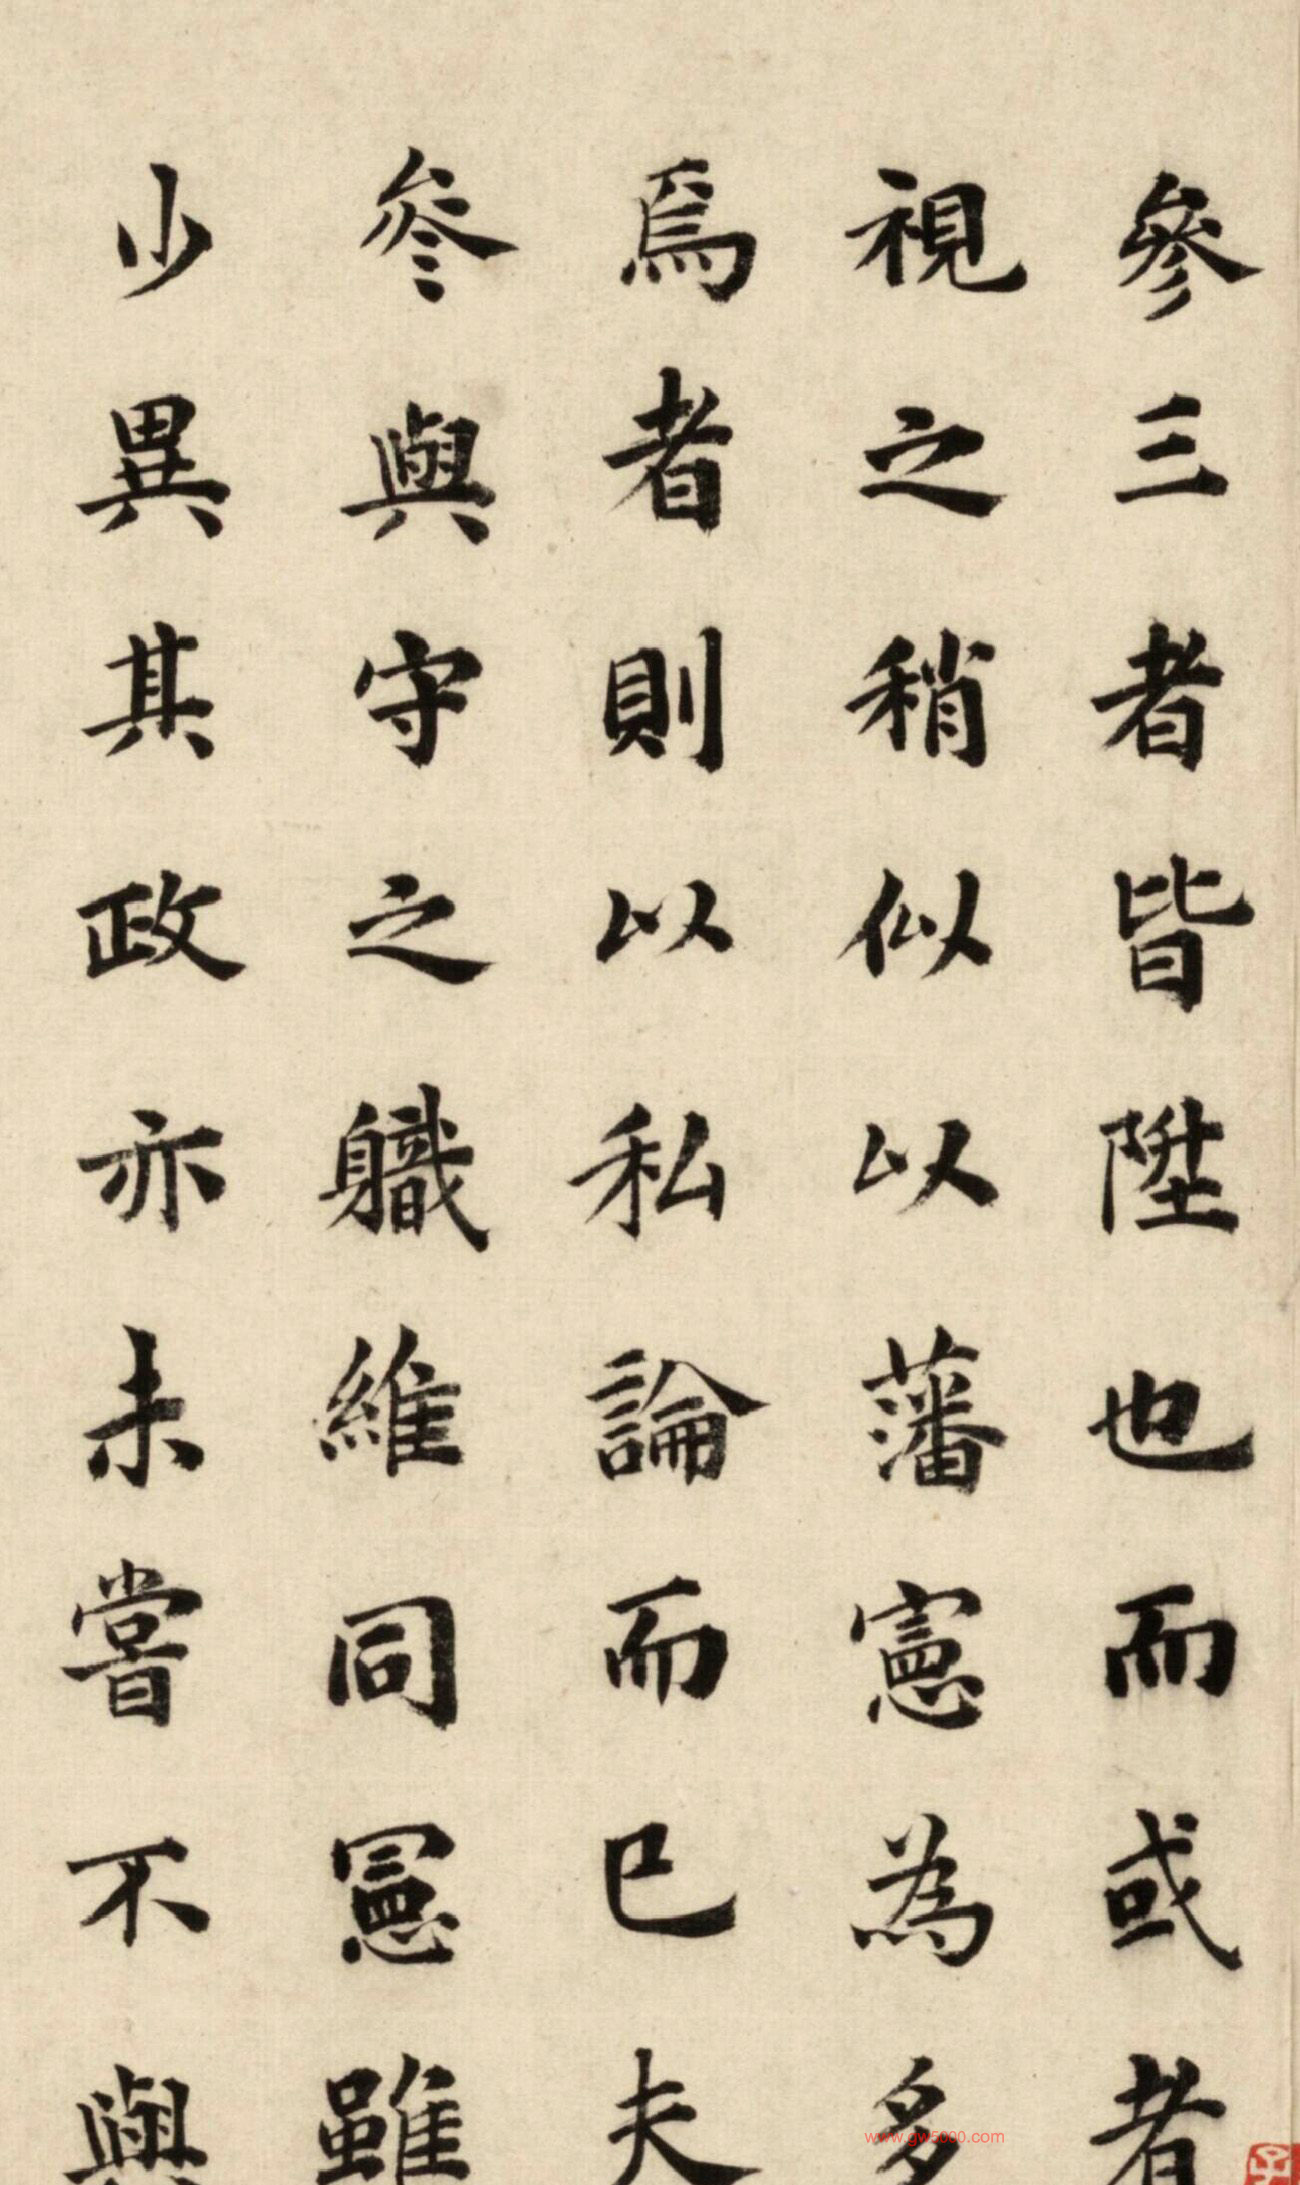 參三者皆陞也而或者
視之稍似以藩憲為多
爲者則以私論而已夫
參與守之職維同憲雖
少異其政亦未嘗不與
www.gw5000.com